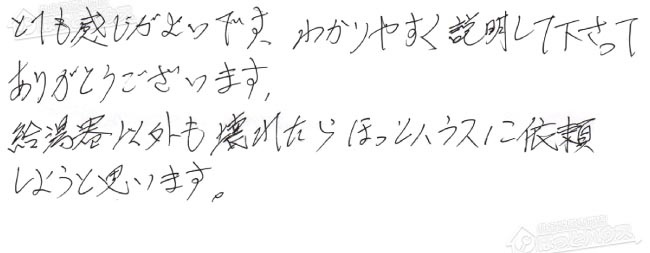 とても感じがよいです、わかりやすく説明して下さって
ありがとうございます,
給湯器以外も壊れたらほっとハウスに依頼
しようと思います。
ほっとハウス